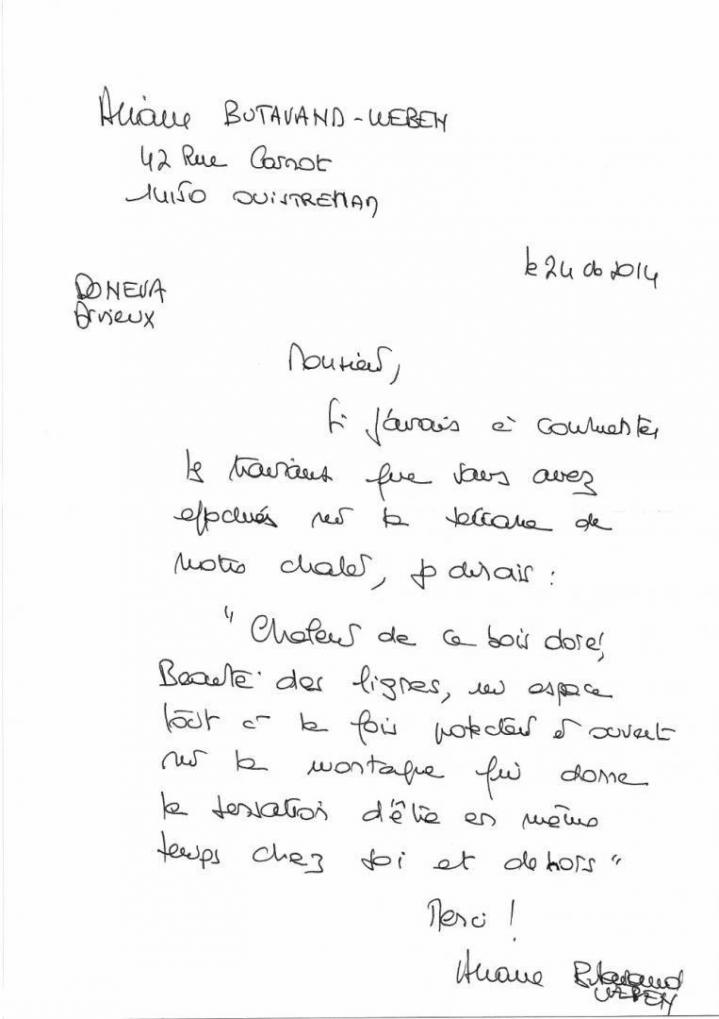 Ariane BUTAVAND-WEBER
42 Rue Carnot
14150 OUISTREHAM
le 24 06 2014
DONEVA
Arvieux
Monsieur,
Si j'avais à commenter
les travaux que vous avez
effectués sur la terrasse de
notre chalet, je dirais :
"Chaleur de ce bois doré,
Beauté des lignes, un espace
tout à la fois protecteur et ouvert
sur la montagne qui donne
la sensation d'être en même
temps chez soi et dehors"
Merci !
Ariane Butavand
WEBER